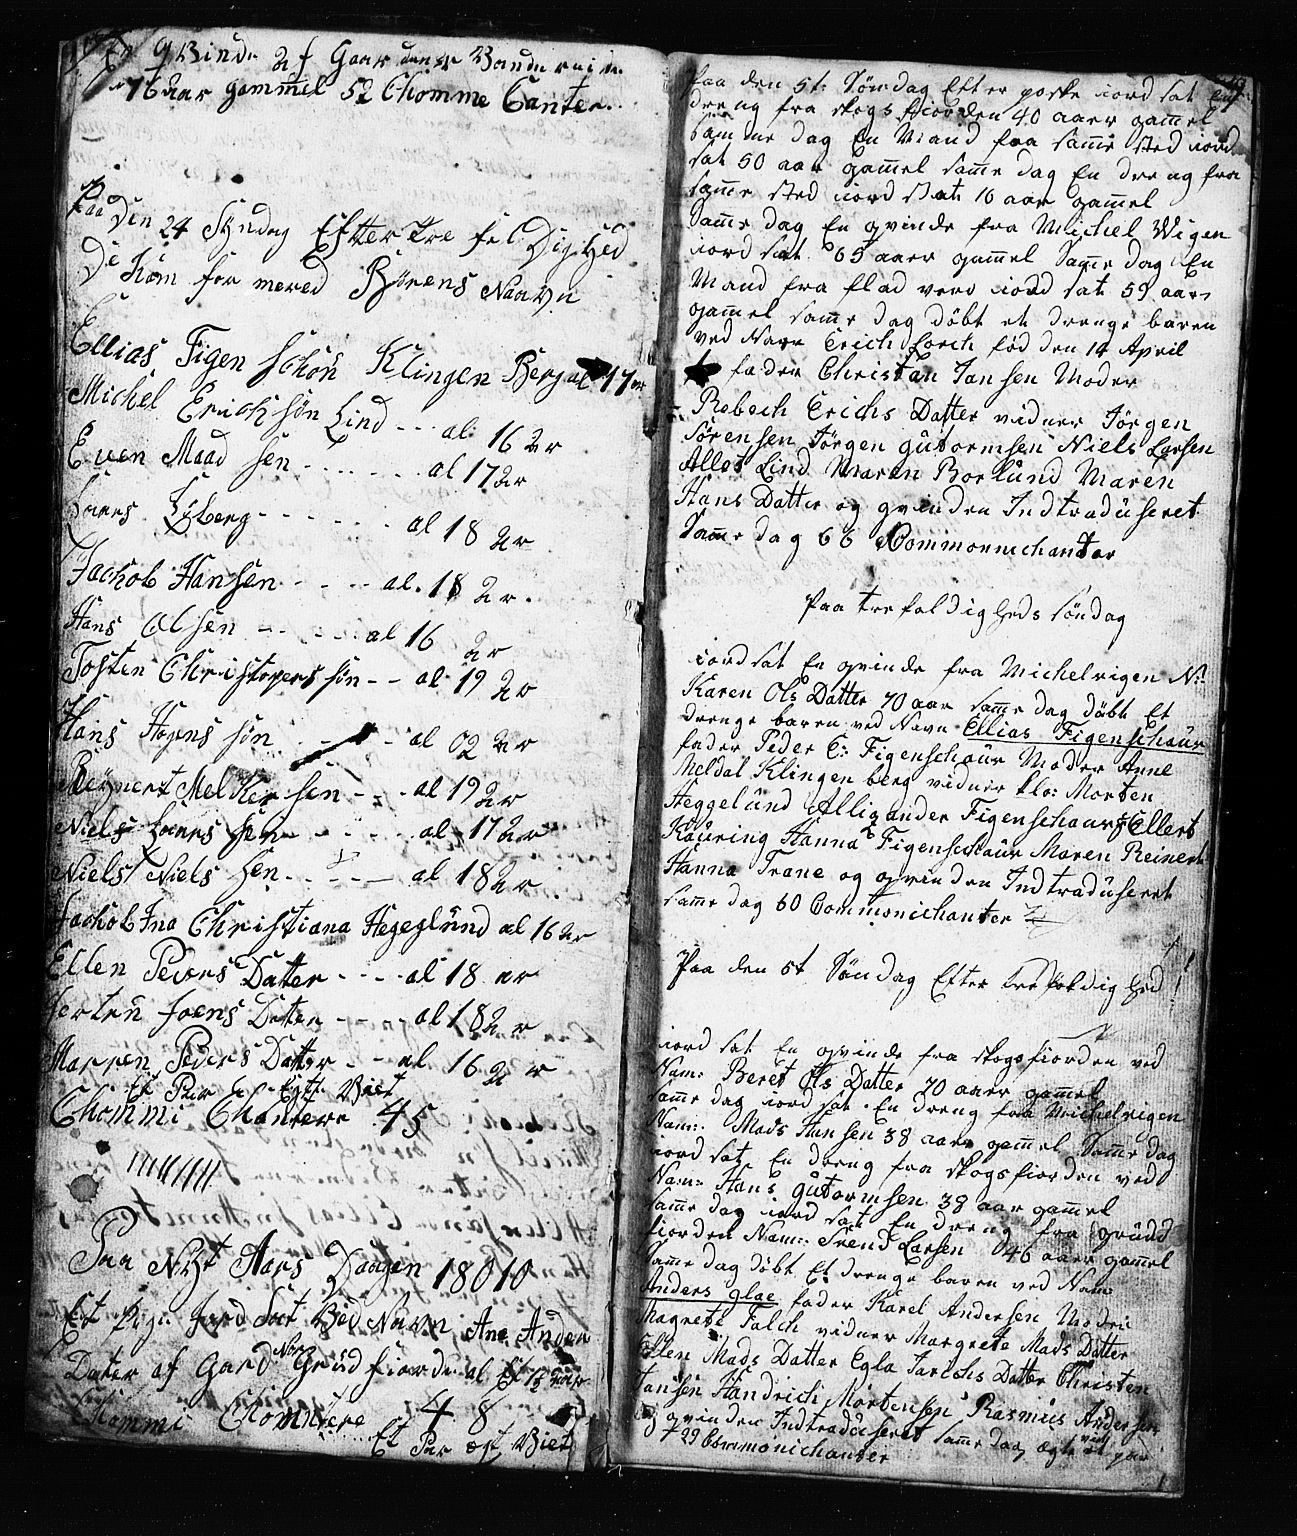 En qvinde af Gaarden Vandereid
76 aar gammel 52 Chomme Canter

Paa Den 24 Syndag Efter Tre fel Dighed
De Kom for mered Børens Naavn

Ellias Figen schou Klingen Berg al 17 ar
Michel Erichsøn Lind - - - al 16 2r
Even Maad sen - - - - al 17 2r
Laars Lyberg - - - - - - al 18 2r
Jachob Hansen - - - - al. 18 2r.
Hans Olsen - - - - - al 16 2r
Tosten Christopers søn - - al 19 2r
Hans Hagens søn - - - al 02 2r
Reÿnert Melkersen - - - al 19 2r
Niels Laars sen - - - - al 17 2r
Niels Niels sen - - - - al 18 2r
Jachob Ina Christiana Hegeglund al 16 2r
Ellen Peders Datter - - - al 18 ar
Jerten Joens Datter - - al 18 2r
Marren Peders Datter - - al 16 2r
Et Par Egte Viet
Chommi Chantere 45

Paa Nyt Aars Daagen 18010
Et Pige Jord sat Ved Navn Ane Ander
Dater af Gard Nore Grüd fiorde al
Chammi Chomntere 48
Et Par egt Viet

Paa den 5t: Søndag Efter poske iord sat En
dreng fra skogs fiorden 40 aar gamel
samme dag En Mand fra samme sted iord
sat 50 aar gamel samme dag En dreng fra
samme sted iord sat 16 aar gamel
Samme dag En qvinde fra Michel Wigen
iord sat 65 aar gammel Samme dag En
Mand fra flad vero iord sat 59 aar
gammel samme dag døbt et drenge baren
ved Navn Erich Lorch fød den 14 April
fader Christan Jansen Moder
Rebech Erichs Datter vidner Jørgen
Sørensen Jørgen gutormsen Niels Larsen
Allet Lind Maren Borlund Maren
Hans Datter og qvinden Indtraduseret
Samme dag 66 Commonnichanter

Paa trefoldigheds søndag

iordsat En qvinde fra Michelvigen N:
Karen Ols Datter 70 aar samme dag døbt Et
drenge baren ved Navn Ellias Figenschaür
fader Peder E: Figenschaür Moder Anne
Meldal Klingenberg vidner klo: Morten
Heggelund Alligander Figenschaur Ellert
Kaüring Hanna Figenschaür Maren Reinert
Hanna Trane og qvinden Indtraduseret
samme dag 60 Commonichanter

Paa den 5t Søndag Efter trefoldighed

iord sat En qvinde fra skogsfiorden ved
Nam: Beret Ols Datter 70 aar gammel
samme dag iord sat En dreng fra Michelvigen
Nam: Mads Hansen 38 aar gammel Samme dag
iord sat En dreng fra skogsfiorden ved
Nam: Hans gutormsen 38 aar gammel
samme dag iord sat En dreng fra grüdd
fiorden Nam: Svend Larsen 46 aar gammel
Samme dag døbt Et drenge baren ved Nam
Anders glae fader Karel Andersen Modre
Magrete Falch vidner Margrete Mads Datter
Ellen Mads Datter Egla Jarichs Datter Christen
Jansen Handrich Mortensen Rasmus Andersen
og qvinden Indtraduseret samme dag ægte viet et par
29 Commonichanter